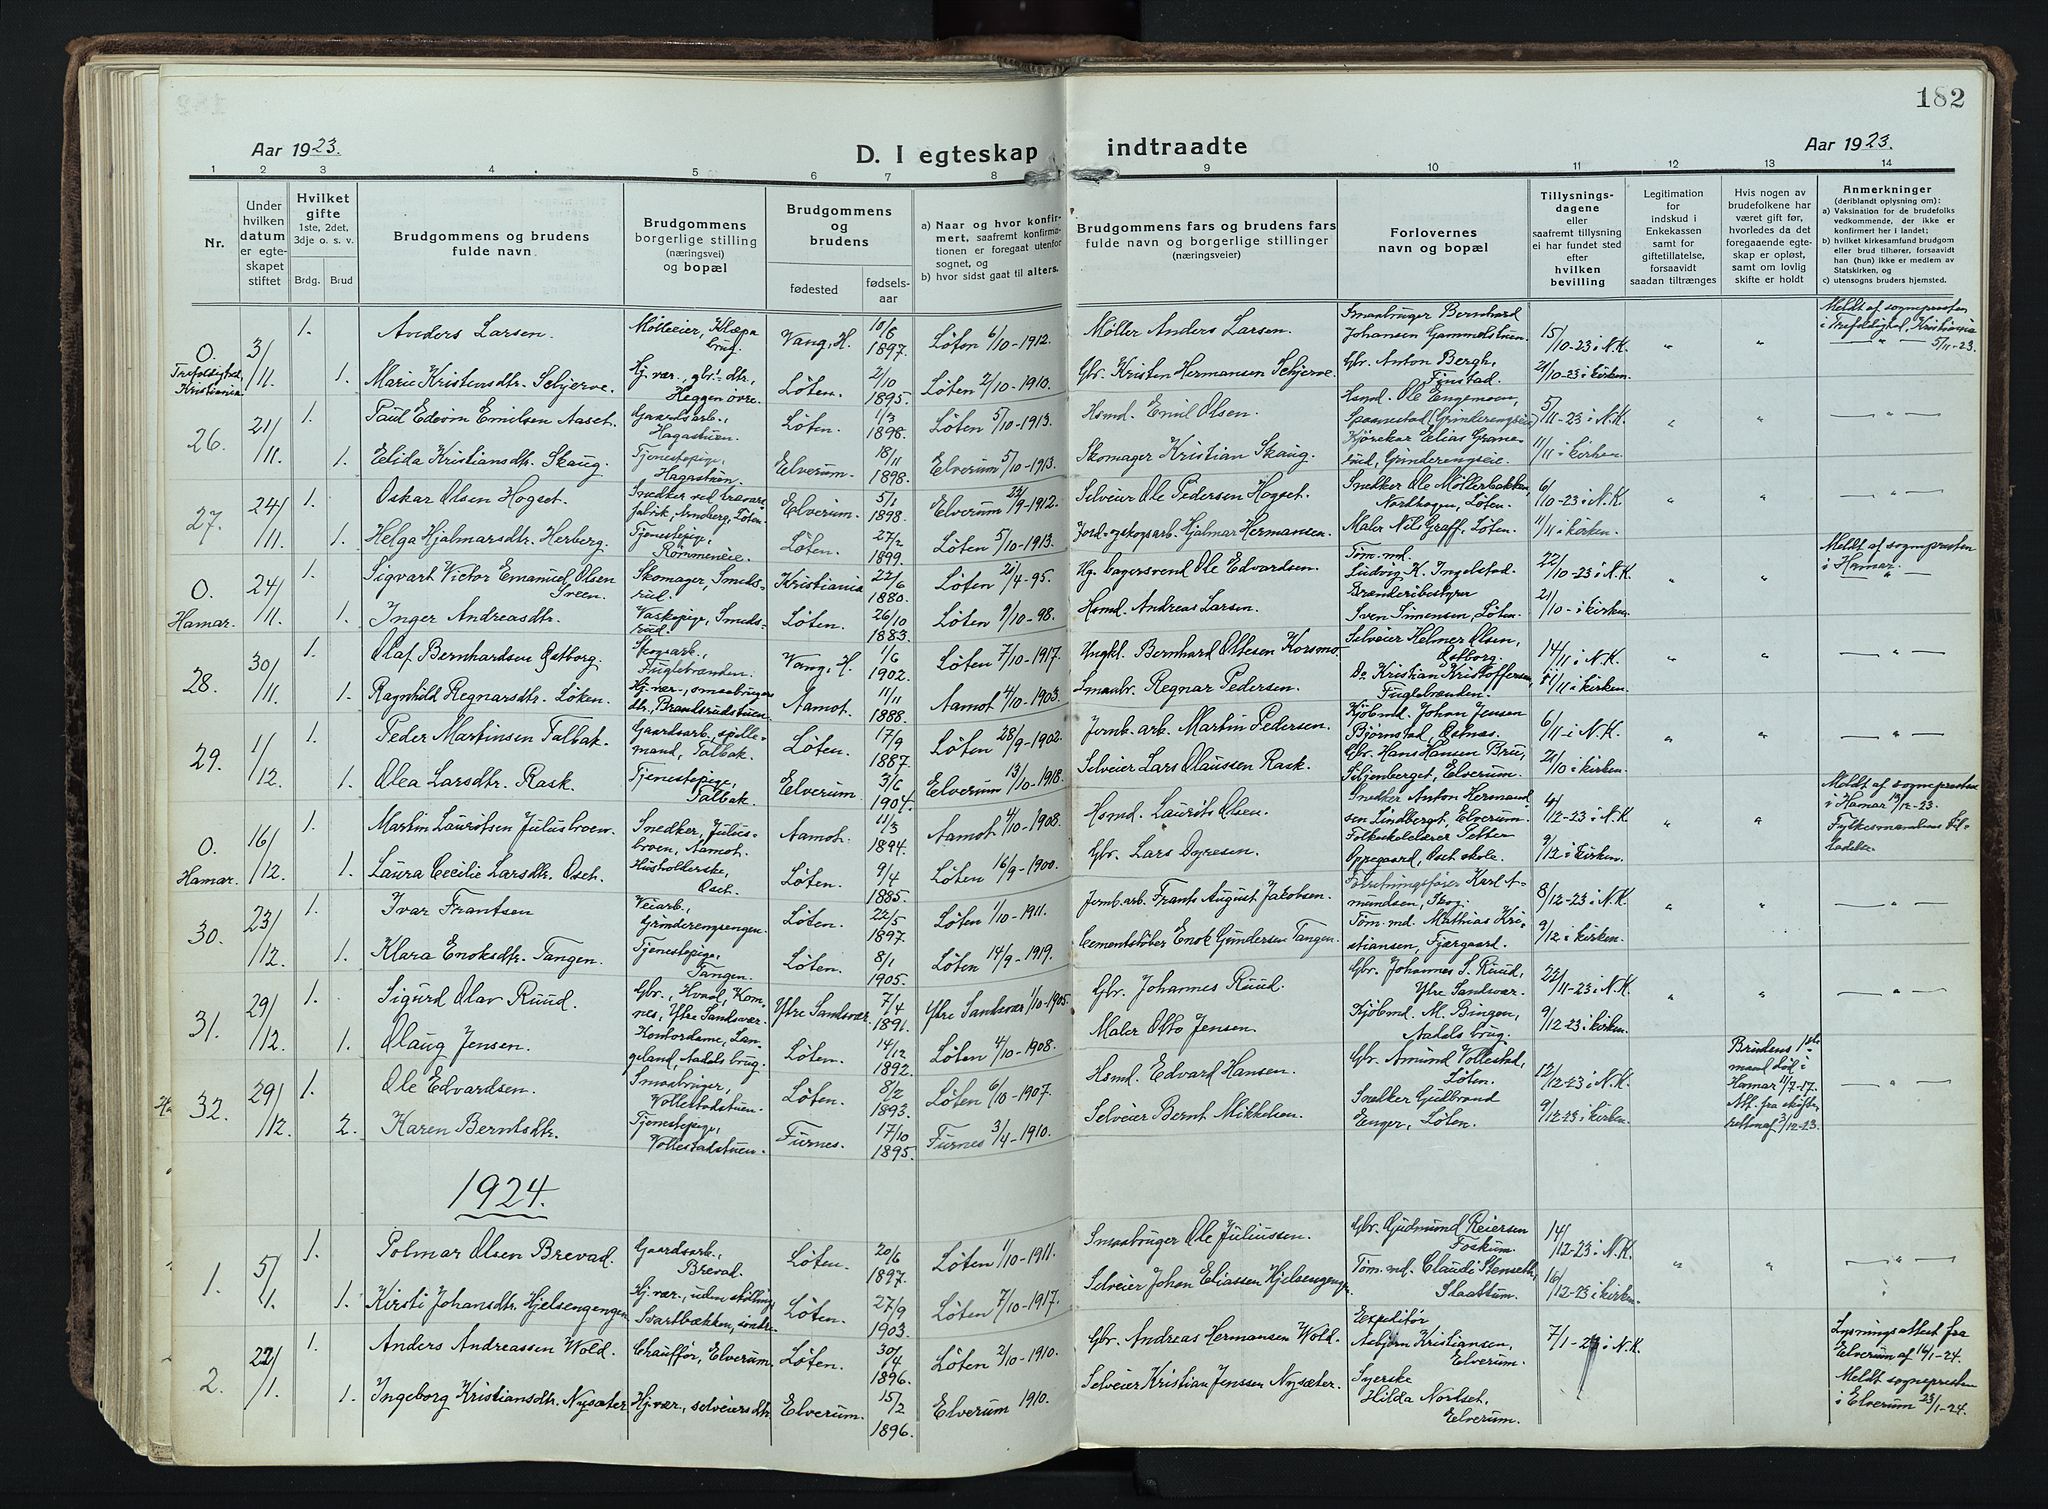 182
Aar 1923.
D. I egteskap indtraadte
Aar 1923.
1 2 3 4 5 6 7 8 9 10 11 12 13 14
Nr.
Under hvilken datum er egteskapet stiftet
Hvilket gifte 1ste, 2det, 3dje o. s. v.
Brdg. Brud
Brudgommens og brudens fulde navn.
Brudgommens borgerlige stilling (næringsvei) og bopæl
Brudgommens og brudens
fødested
fødselsaar
a) Naar og hvor konfirmert, saafremt konfirmationen er foregaat utenfor sognet, og
b) hvor sidst gaat til alters.
Brudgommens fars og brudens fars fulde navn og borgerlige stillinger (næringsveier)
Forlovernes navn og bopæl
Tillysningsdagene eller saafremt tillysning ei har fundet sted efter hvilken bevilling
Legitimation for indskud i Enkekassen samt for giftetillatelse, forsaavidt saadan tiltrænges
Hvis nogen av brudefolkene har været gift før, hvorledes da det foregaaende egteskap er opløst, samt om lovlig skifte er holdt
Anmerkninger (deriblandt oplysning om):
a) Vaksination for de brudefolks vedkommende, der ikke er konfirmert her i landet;
b) hvilket kirkesamfund brudgom eller brud tilhører, forsaavidt han (hun) ikke er medlem av Statskirken, og
c) utensogns bruders hjemsted.
O. Trefoldighet, Kristiania 3/11 1. Anders Larsen. Mølleeier, Klæpa brug. Vang, H. 10/8 1897. Løten 6/10-1912. Møller Anders Larsen. Smaabruger Bernhard Johansen Gammelstuen. 15/10-23 i N.K. " " Meldt af sognepresten i Trefoldighet, Kristiania 5/11-23.
1. Marie Kristensdtr. Schjerve. Hj. vær., gbr. dtr., Heggen øvre. Løten. 2/10 1895. Løten 2/10-1910. Gbr. Kristen Hermansen Schjerve. Gbr. Anton Bergh, Finstad. 21/10-23 i kirken.
26. 21/11. 1. Paul Edvin Emilsen Aaset. Gaardsarb., Hagastuen. Løten. 1/3 1898. Løten 5/10-1913. Hsmd. Emil Olsen. Hsmd. Ole Engemoen, Spaanestad (Grinderengseie) 5/11-23 i N.K. " " "
1. Elida Kristiansdtr. Skaug. Tjenestepige, Hagastuen. Elverum. 18/11 1898. Elverum 5/10-1913. Skomager Kristian Skaug. Kjørekar Elias Granerud, Grinderengseie. 11/11 i kirken.
27. 24/11. 1. Oskar Olsen Hogset. Snedker ved trævarefabrik, Arneberg, Løten. Elverum. 5/1 1898. Elverum 22/9-1912. Selveier Ole Pedersen Hogset. Snedker Ole Møllerbakken, Nordhagen, Løten. 6/10-23 i N.K. " " "
1. Helga Hjalmarsdtr. Herberg. Tjenestepige, Rømmeneie. Løten. 27/2 1899. Løten 5/10-1913. Jord- og skogsarb. Hjalmar Hermansen. Maler Nils Graff, Løten. 11/11 i kirken.
O. Hamar. 24/11. 1. Sigvart Victor Emanuel Olsen Sveen. Skomager, Smedsrud. Kristiania 22/6 1880. Løten 21/4-95. Hg. Dagersvend Ole Edvardsen. Tøm. md. Ludvig K. Ingelstad. 22/10-23 i N.K. " " Meldt af sognepresten i Hamar.
1. Inger Andreasdtr. Vaskepige, Smedsrud. Løten. 26/10 1883. Løten 9/10-98. Hsmd. Andreas Larsen. Brænderibestyrer Sven Simensen, Løten. 21/10- i kirken.
28. 30/11. 1. Olaf Bernhardsen Østborg. Skogsarb., Fuglebrænden. Vang, H. 1/6 1902. Løten 7/10-1917. Ungkl. Bernhard Ottesen Korsmo. Selveier Helmer Olsen, Østborg. 14/11 i N.K. " " "
1. Ragnhild Regnarsdtr. Løken. Hj. vær., smaabrugers dtr., Brandsrudstuen. Aamot. 11/11 1888. Aamot 4/10-1903. Smaabr. Regnar Pedersen. Do. Kristian Kristoffersen, Fuglebrænden. 11/11 i kirken.
29. 1/12. 1. Peder Martinsen Talbak. Gaardsarb. spillemand, Talbak. Løten. 17/9 1887. Løten 28/9-1902. Jernb. arb. Martin Pedersen. Kjøbmd. Johan Jensen Bjørnstad, Østnes. 6/11- i N.K. " " "
1. Olea Larsdtr. Rask. Tjenestepige, Talbak. Elverum. 3/6 1904. Elverum 13/10-1918. Selveier Lars Olaussen Rask. Gbr. Hans Hansen Bru, Siljenberget, Elverum. 21/10 i kirken.
O. Hamar. 16/12. 1. Martin Lauritsen Julusbroen. Snedker, Julusbroen, Aamot. Aamot. 11/3 1894. Aamot 4/10-1908. Hsmd. Laurits Olsen. Snedker Anton Hermansen Lindberget, Elverum. 4/12-23 i N.K. " " Meldt af sognepresten i Hamar 19/12-23.
1. Laura Cecilie Larsdtr. Oset. Husholderske, Oset. Løten. 9/4 1885. Løten 16/9-1900. Gbr. Lars Dyresen. Folkeskolelærer Petter Oppegaard, Oset skole. 9/12 i kirken. Fylkesmandens tilladelse
30. 23/12. 1. Ivar Frantsen Veiarb., Grinderengsengen. Løten. 22/5 1897. Løten 1/10-1911. Jernb. arb. Frants August Jakobsen. Forretningsfører Karl Amundsen, Skog. 8/12-23 i N.K. " " "
1. Klara Enoksdtr. Tangen. Tjenestepige, Tangen. Løten. 8/1 1905. Løten 14/9-1919. Cementstøber Enok Gundersen Tangen. Tøm. md. Mathias Kristiansen, Fjærgaard. 9/12 i kirken.
31. 29/12. 1. Sigurd Olav Ruud. Gbr., Hvaal, Komnes, Ytre Sandsvær. Ytre Sandsvær. 7/4 1891. Ytre Sandsvær 1/10-1905. Gbr. Johannes Ruud. Gbr. Johannes S. Ruud, Ytre Sandsvær. 22/11-23 i N.K. " " "
1. Olaug Jensen. Kontordame, Langeland, Aadals brug. Løten. 14/12 1892. Løten 4/10-1908. Maler Otto Jensen. Kjøbmd. M. Bingen, Aadals brug. 9/12-23 i kirken.
32. 29/12. 1. Ole Edvardsen. Smaabruger, Vollestadstuen. Løten. 8/2 1893. Løten 6/10-1907. Hsmd. Edvard Hansen. Gbr. Amund Vollestad, Løten. 12/12-23 i N.K. Brudens 1ste mand død i Hamar 11/7-17. Att. fra skifteretten af 3/12-23. "
2. Karen Berntsdtr. Tjenestepige, Vollestadstuen. Furnes. 17/10 1895. Furnes 3/4-1910. Selveier Bernt Mikkelsen. Svelker Gulbrand Enger, Løten. 9/12-23 i kirken.
1924.
1. 5/1. 1. Polmar Olsen Brevad. Gaardsarb., Brevad. Løten. 20/6 1897. Løten 1/10-1911. Smaabruger Ole Juliussen. Gbr. Gudmund Reiersen Foskum. 14/12-23 i N.K. " " "
1. Kirsti Johansdtr. Hjelsengengen Hj. vær., uden stilling, Svartbækken, søndr. Løten. 27/9 1903. Løten 7/10-1917. Selveier Johan Eliassen Hjelsengengen. Tøm. md. Claudi Stenseth, Slaattum. 16/12-23 i kirken.
2. 22/1. 1. Anders Andreassen Wold. Chauffør, Elverum. Løten. 30/4 1896. Løten 2/10-1910. Gbr. Andreas Hermansen Wold. Expeditør Asbjørn Kristiansen, Elverum. 7/1-24 i N.K. Lysningsattest fra Elverum af 16/1-24.
1. Ingeborg Kristiansdtr. Nysæter Hj. vær., selveiers dtr. Elverum. 15/2 1896. Elverum 1910. Selveier Kristian Jenssen Nysæter. Syerske Hilda Nordset, Elverum. Meldt sognepresten i Elverum 23/1-24.